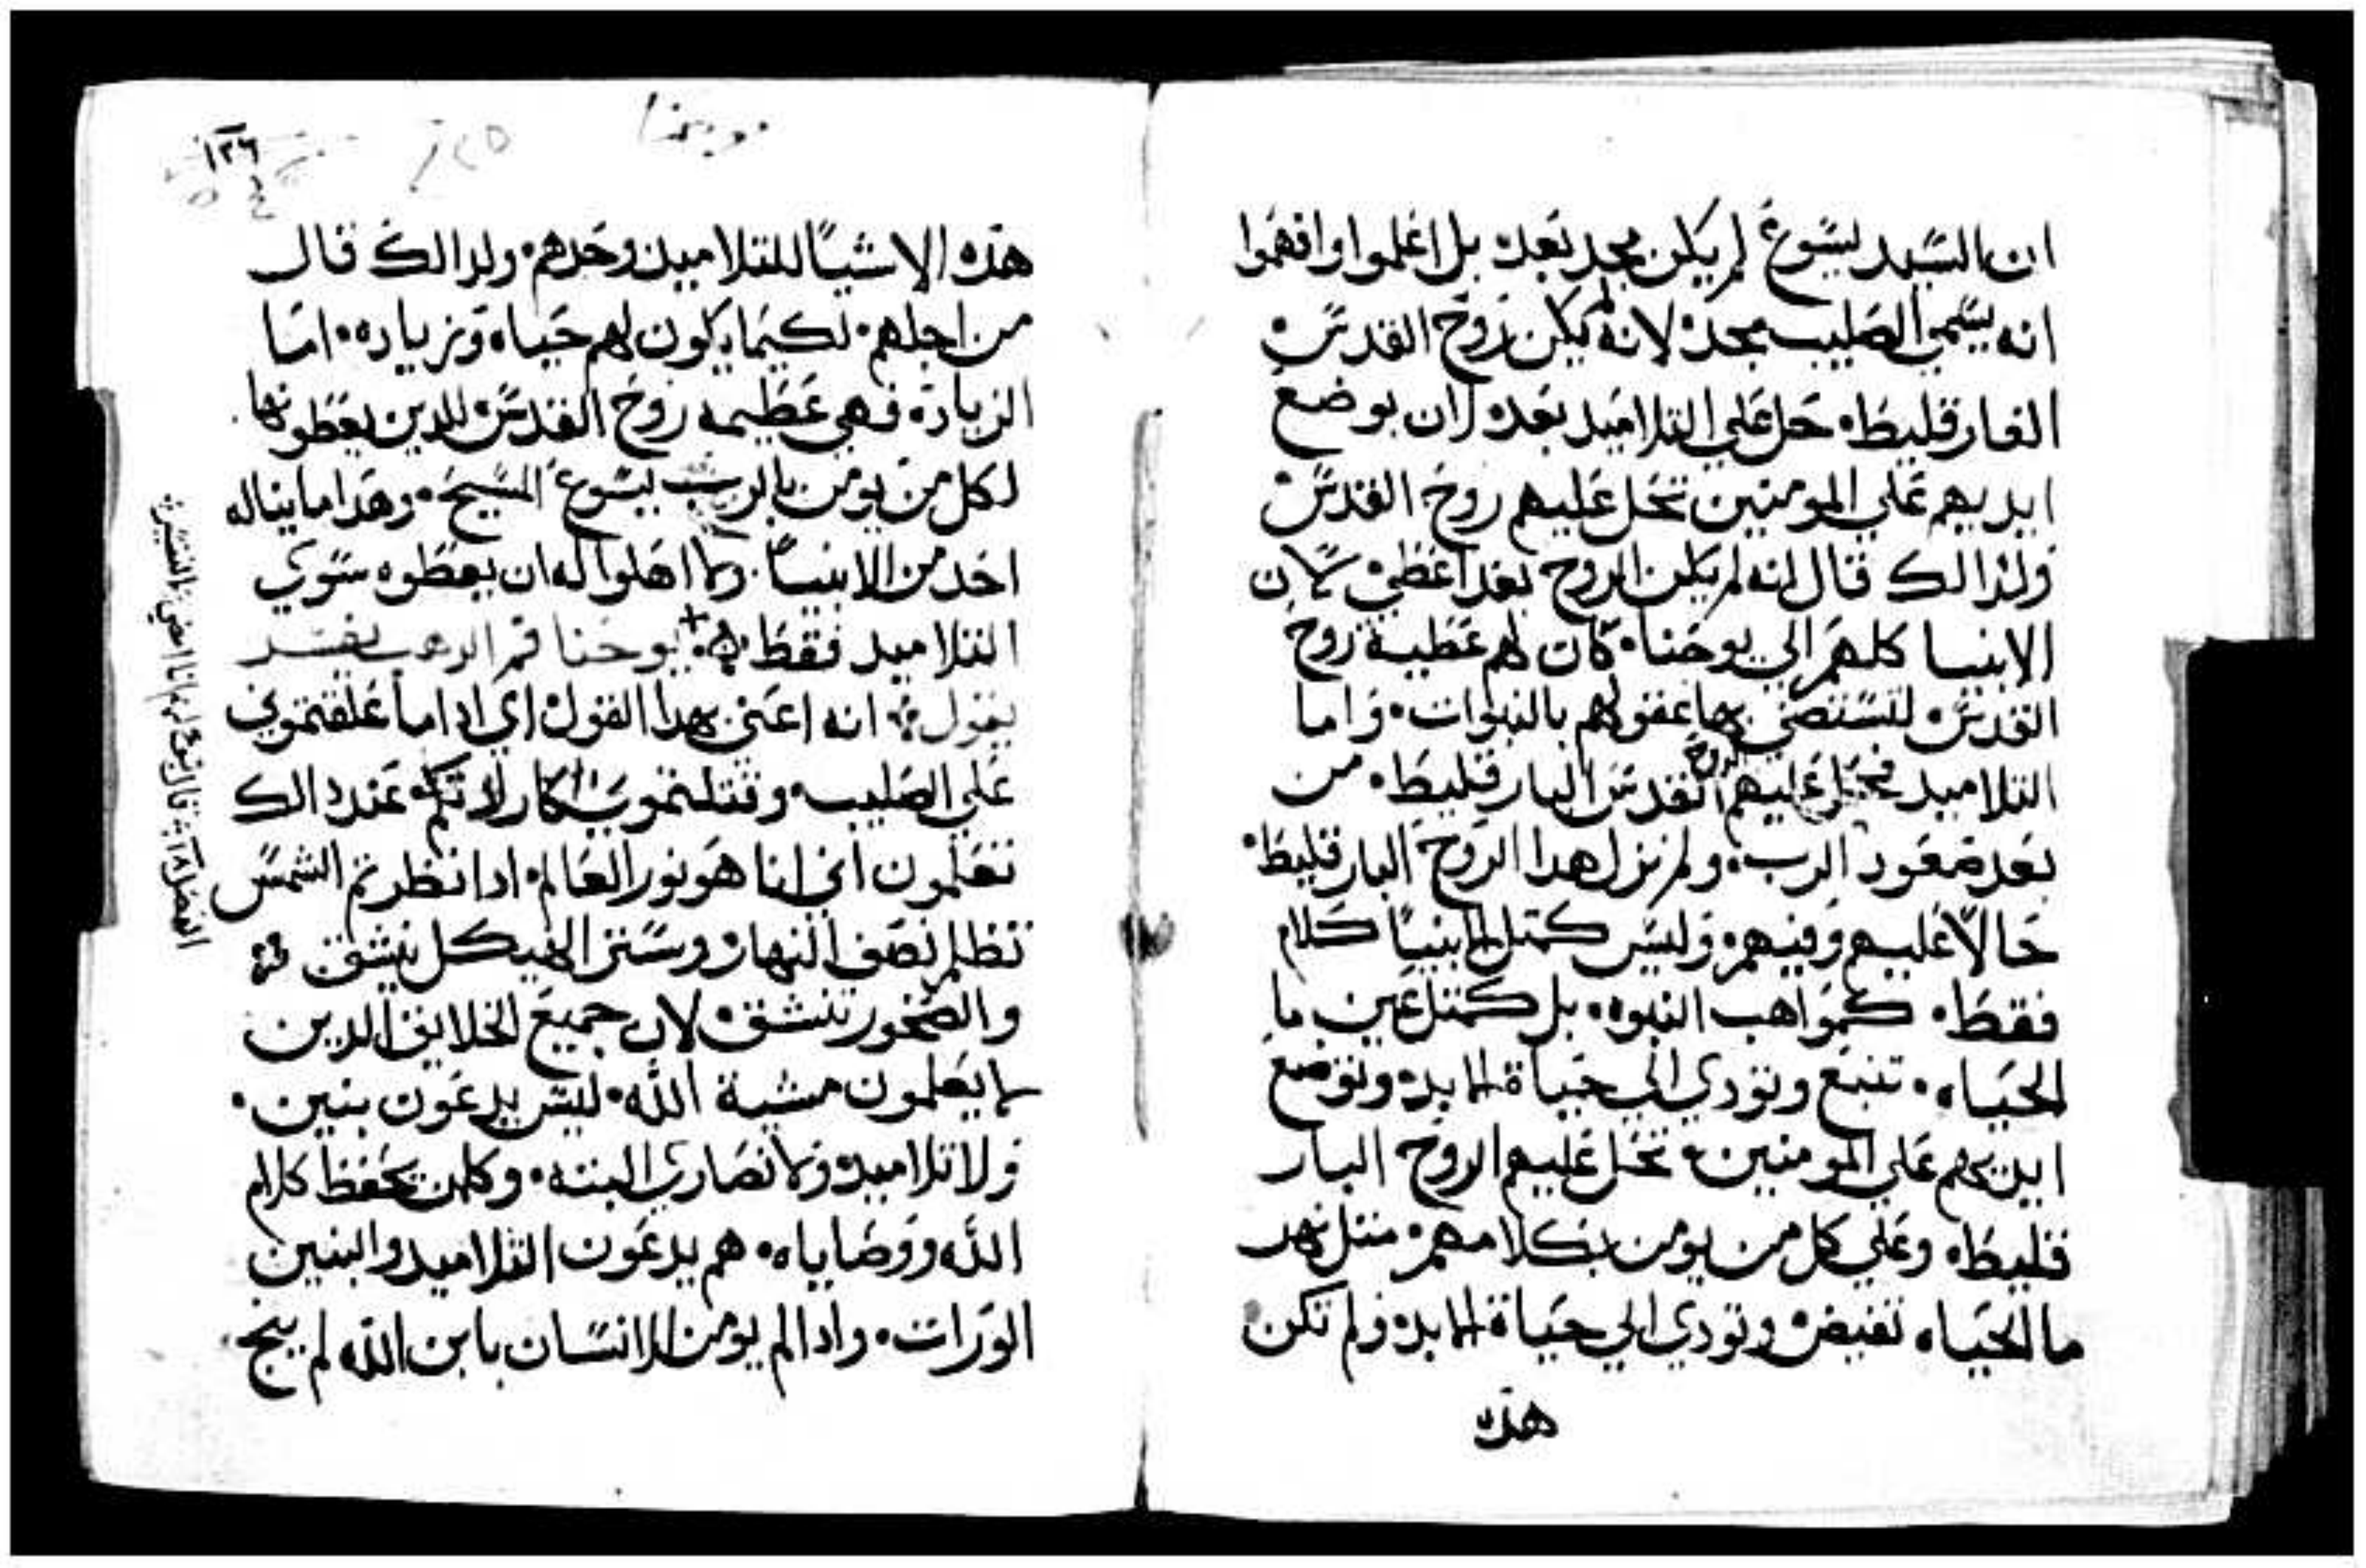 ان السيد يسوع لم يكن مجد بعد بل اعلموا وافهموا
انه يسمي الصليب مجد لانه لم يكن روح القدس
الفارقليط حل علي التلاميد بعد لان بوضع
ايديهم علي المومنين تحل عليهم روح القدس
ولدالك قال انه لم يكن الروح بعد اعطي لان
الانبيا كلهم الي يوحنا كان لهم عطية روح
القدس لتستضي بها عقولهم بالنبوات واما
التلاميد فحل عليهم الروح القدس البارقليط من
بعد صعود الرب ولم نزل هدا الروح البارقليط
حالا عليهم وفيهم وليس كمتل الانبيا كلام
فقط كمواهب النبوه بل كمتل عين ما
الحياه تنبع وتودي الي حياة الابد وتوضع
ايديهم علي المومنين تحل عليهم الروح البار
قليط وعلي كل من يومن بكلامهم متل نهر
ما الحياه تفيض وتودي الي حياة الابد ولم تكن
هده
١٢٦
هده الاشيا للتلاميد وحدهم ولدالك قال
من اجلهم لكيما يكون لهم حياه وزياده اما
الزياده فهي عطيه روح القدس للدين يعطونها
لكل من يومن بالرب يسوع المسيح وهدا ما يناله
احد من الانبيا ولا اهلوا له ان يعطوه سوي
التلاميد فقط يوحنا فم الدهب يفسر
يقول انه اعني بهدا القول اي ادا ما علقتموني
علي الصليب وقتلتموني عند دالك
تعلمون اني انا هو نور العالم ادا نظرتم الشمس
تظلم نصف النهار وستر الهيكل ينشق
والصخور تنشق لان جميع الخلايق الدين
لا يعلمون مشية الله ليس يدعون بنين
ولا تلاميد ولا نصاري البته وكلمن يحفظ كلام
الله ووصاياه هم يدعون التلاميد والبنين
الورات وادا لم يومن الانسان بابن الله لم ينج